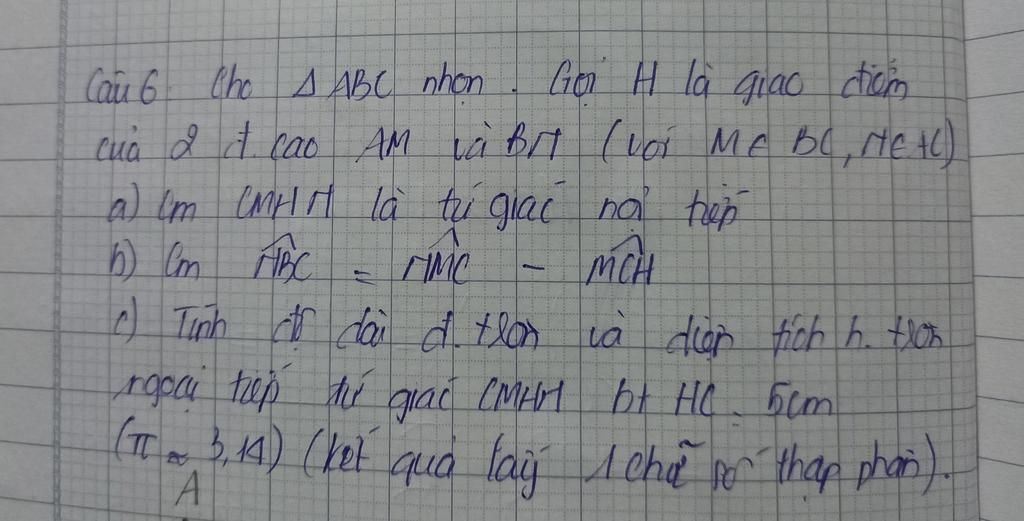 Câu 6. Cho Δ ABC nhọn. Gọi H là giao điểm
của 2 đ. cao AM và BN (với M ∈ BC, N ∈ AC)
a) Cm CMHN là tứ giác nội tiếp
b) Cm \widehat{NBC} = \widehat{NMC} - \widehat{MCH}
c) Tính độ dài đ. tròn và diện tích h. tròn
ngoại tiếp tứ giác CMHN bt HC = 5cm
(π ≈ 3,14) (kết quả lấy 1 chữ số thập phân).
A